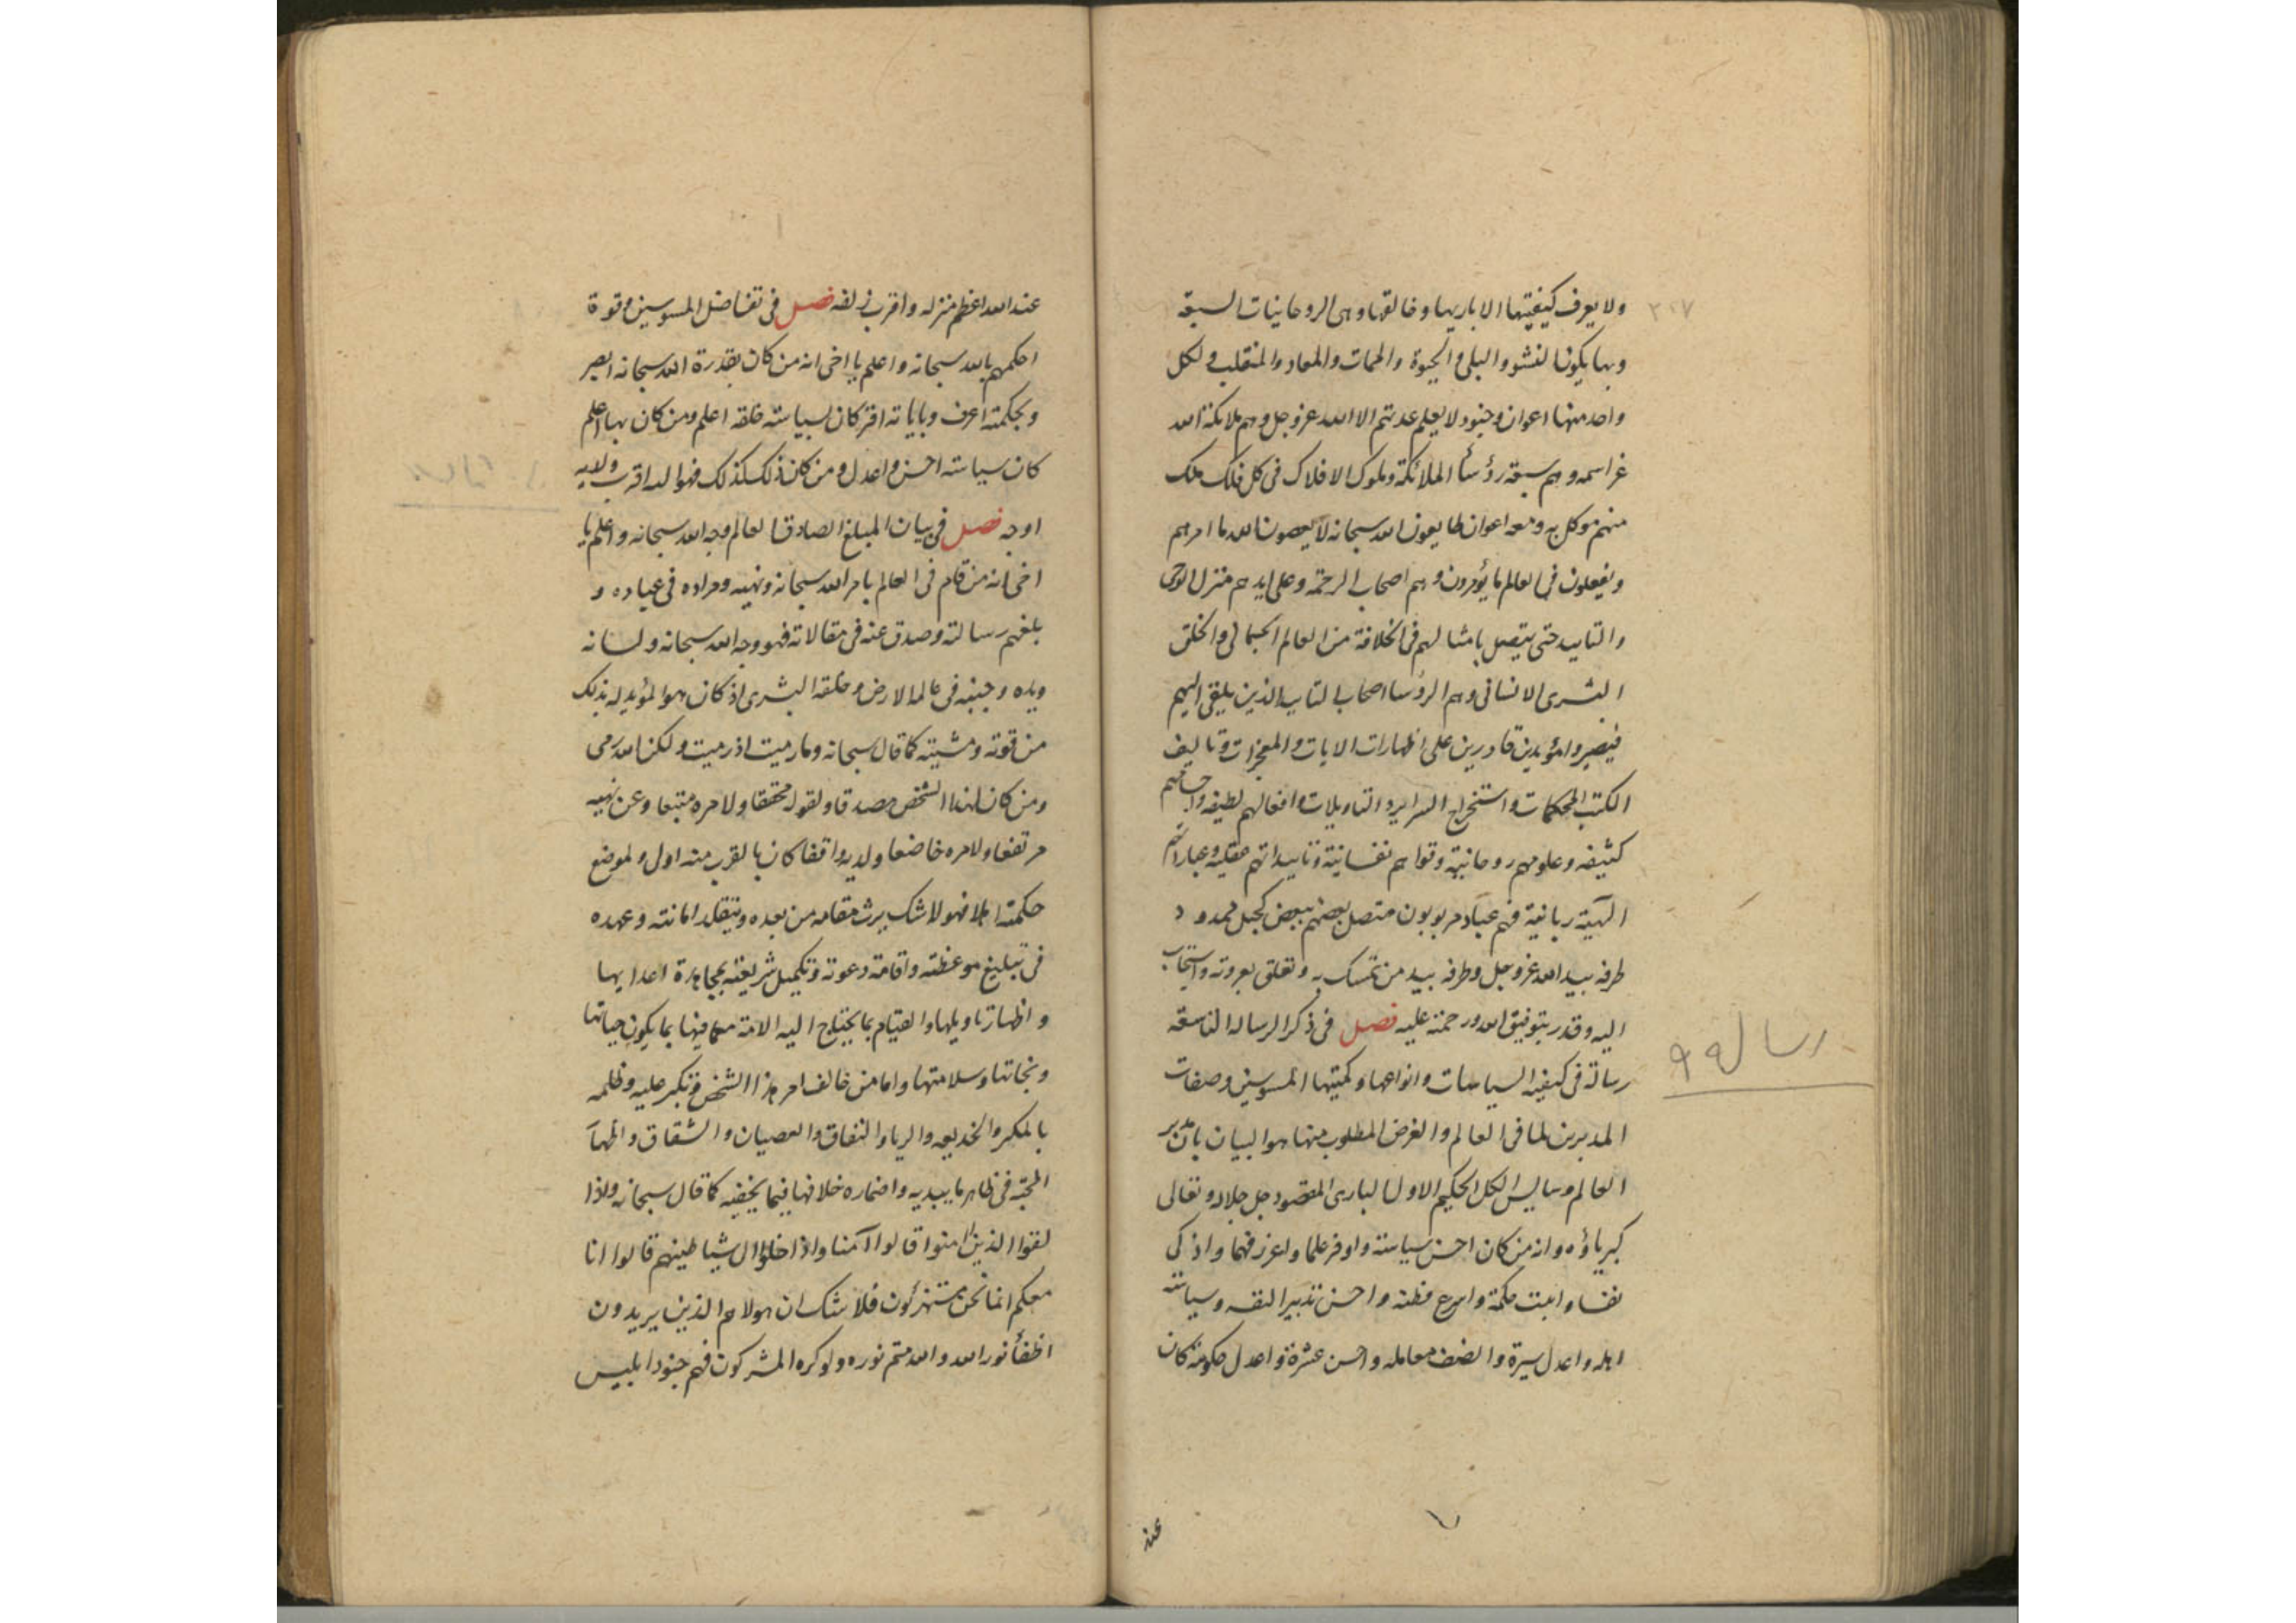 ٣٠٧
ولا يعرف كيفيتها الا باريها وخالقها وهى الروحانيات السبعة
وبها يكون النشو والبلى والحيوة والممات والمعاد والمنقلب ولكل
واحد منها اعوان وجنود لا يعلم عدتهم الا الله عز وجل وهم ملائكة الله
عز اسمه وهم سبعة رؤسأ الملائكة وملوك الافلاك فى كل فلك ملك
منهم موكل به ومعه اعوان طايعون الله سبحانه لا يعصون الله ما امرهم
ويفعلون فى العالم ما يؤمرون وهم اصحاب الرحمة وعلى ايديهم منزل الوحى
والتاييد حتى يتصل بامثالهم فى الخلافة من العالم الجسمانى والخلق
البشرى الانسانى وهم الرؤسا اصحاب التاييد الذين يلقى اليهم
فيصيروا مؤيدين قادرين على اظهارات الايات والمعجزات وتاليف
الكتب المحكمات واستخراج السراير والتاويلات وافعالهم لطيفه واجسامهم
كثيفه وعلومهم روحانية وقواهم نفسانية وتاييداتهم عقليه وعباراتهم
الهية ربانية فهم عباد مربوبون متصل بعضهم ببعض كحبل ممدود
طرفه بيد الله عز وجل وطرفه بيد من تمسك به وتعلق بعروته واستجاب
اليه وقدر بتوفيق الله ورحمته عليه فصل فى ذكر الرساله التاسعة
رسالة فى كيفيه السياسات وانواعها وكميتها المسوسين وصفات
رسالة ٩
المدبرين لما فى العالم والغرض المطلوب منها هو البيان بان مدبر
العالم وسايس الكل الحكيم الاول البارى المقصود جل جلاله وتعالى
كبرياؤه وانه من كان احسن سياسته واوفر علما واعزز فهما واذكى
نفسا واثبت حكمة واسرع فطنه واحسن تدبيرا لنفسه وسياسته
اهله واعدل سيرة وانصف معامله واحسن عشرة واعدل حكومة كان
عند
عند الله اعظم منزله واقرب زلفه فصل فى تفاضل المسوسين وقوة
احكمهم بالله سبحانه واعلم يا اخى انه من كان بقدرة الله سبحانه ابصر
وبحكمته اعرف وباياته اقر كان بسياسته خلقه اعلم ومن كان بها اعلم
كان سياسته احسن واعدل ومن كان ذلك كذلك فهو الى الله اقرب ولديه
اوجه فصل فى بيان المبلغ الصادق العالم وجه الله سبحانه واعلم يا
اخى انه من قام فى العالم بامر الله سبحانه ونهيه ومراده فى عباده و
بلغهم رسالته وصدق عنه فى مقالاته فهو وجه الله سبحانه ولسانه
ويده وجنبه فى عالم الارض وخلقه البشرى اذ كان هو المؤيد له بذلك
من قوته ومشيته كما قال سبحانه وما رميت اذ رميت ولكن الله رمى
ومن كان لهذا الشخص مصدقا ولقوله محققا ولامره متبعا وعن نهيه
مرتفعا ولامره خاضعا ولديه واقفا كان بالقرب منه اولى ولموضع
حكمته اهلا فهو لا شك يرث مقامه من بعده ويتقلد امانته وعهده
فى تبليغ موعظته واقامة دعوته وتكميل شريعته بمجاهدة اعدايها
واظهار تاويلها والقيام بما يحتاج اليه الامة معا فيها بما يكون حياتها
ونجاتها وسلامتها واما من خالف امر هذا الشخص وتكبر عليه وظلمه
بالمكر والخديعه والريا والنفاق والعصيان والشقاق واظهآ
المحبه فى ظاهر ما يبديه واضماره خلافها فيما يخفيه كما قال سبحانه واذا
لقوا الذين امنوا قالوا آمنا واذا خلوا الى شياطينهم قالوا انا
معكم انما نحن مستهزئون فلا شك ان هولا هم الذين يريدون
اطفأ نور الله والله متم نوره ولو كره المشركون فهم جنود ابليس